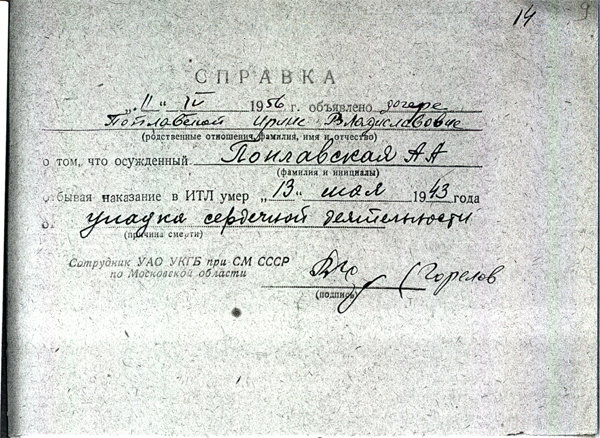 14 9
СПРАВКА
„ 11 " IV 1956 г. объявлено дочере
Поплавской Ирине Владиславовне
(родственные отношения, фамилия, имя и отчество)
о том, что осужденный Поплавская АА
(фамилия и инициалы)
отбывая наказание в ИТЛ умер „ 13 " мая 1943 года
от упадка сердечной деятельности
(причина смерти)
Сотрудник УАО УКГБ при СМ СССР
по Московской области
(Горелов
(подпись)